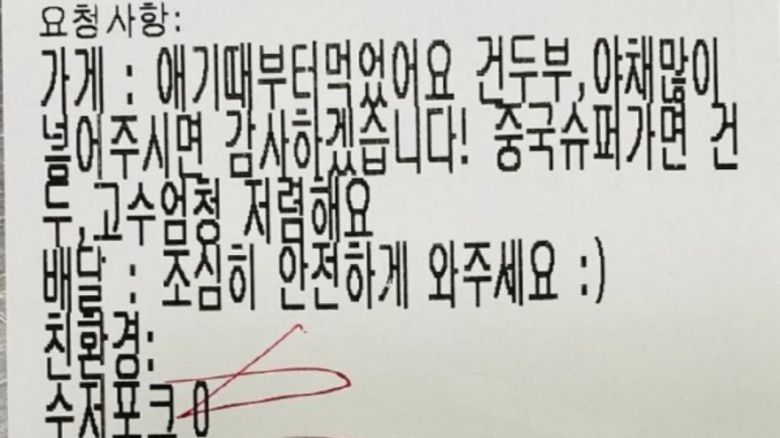 요청사항:
가게 : 애기때부터먹었어요 건두부,야채많이
넣어주시면 감사하겠습니다! 중국슈퍼가면 건
두,고수엄청 저렴해요
배달 : 조심히 안전하게 와주세요 :)
친환경:
수저포크 0